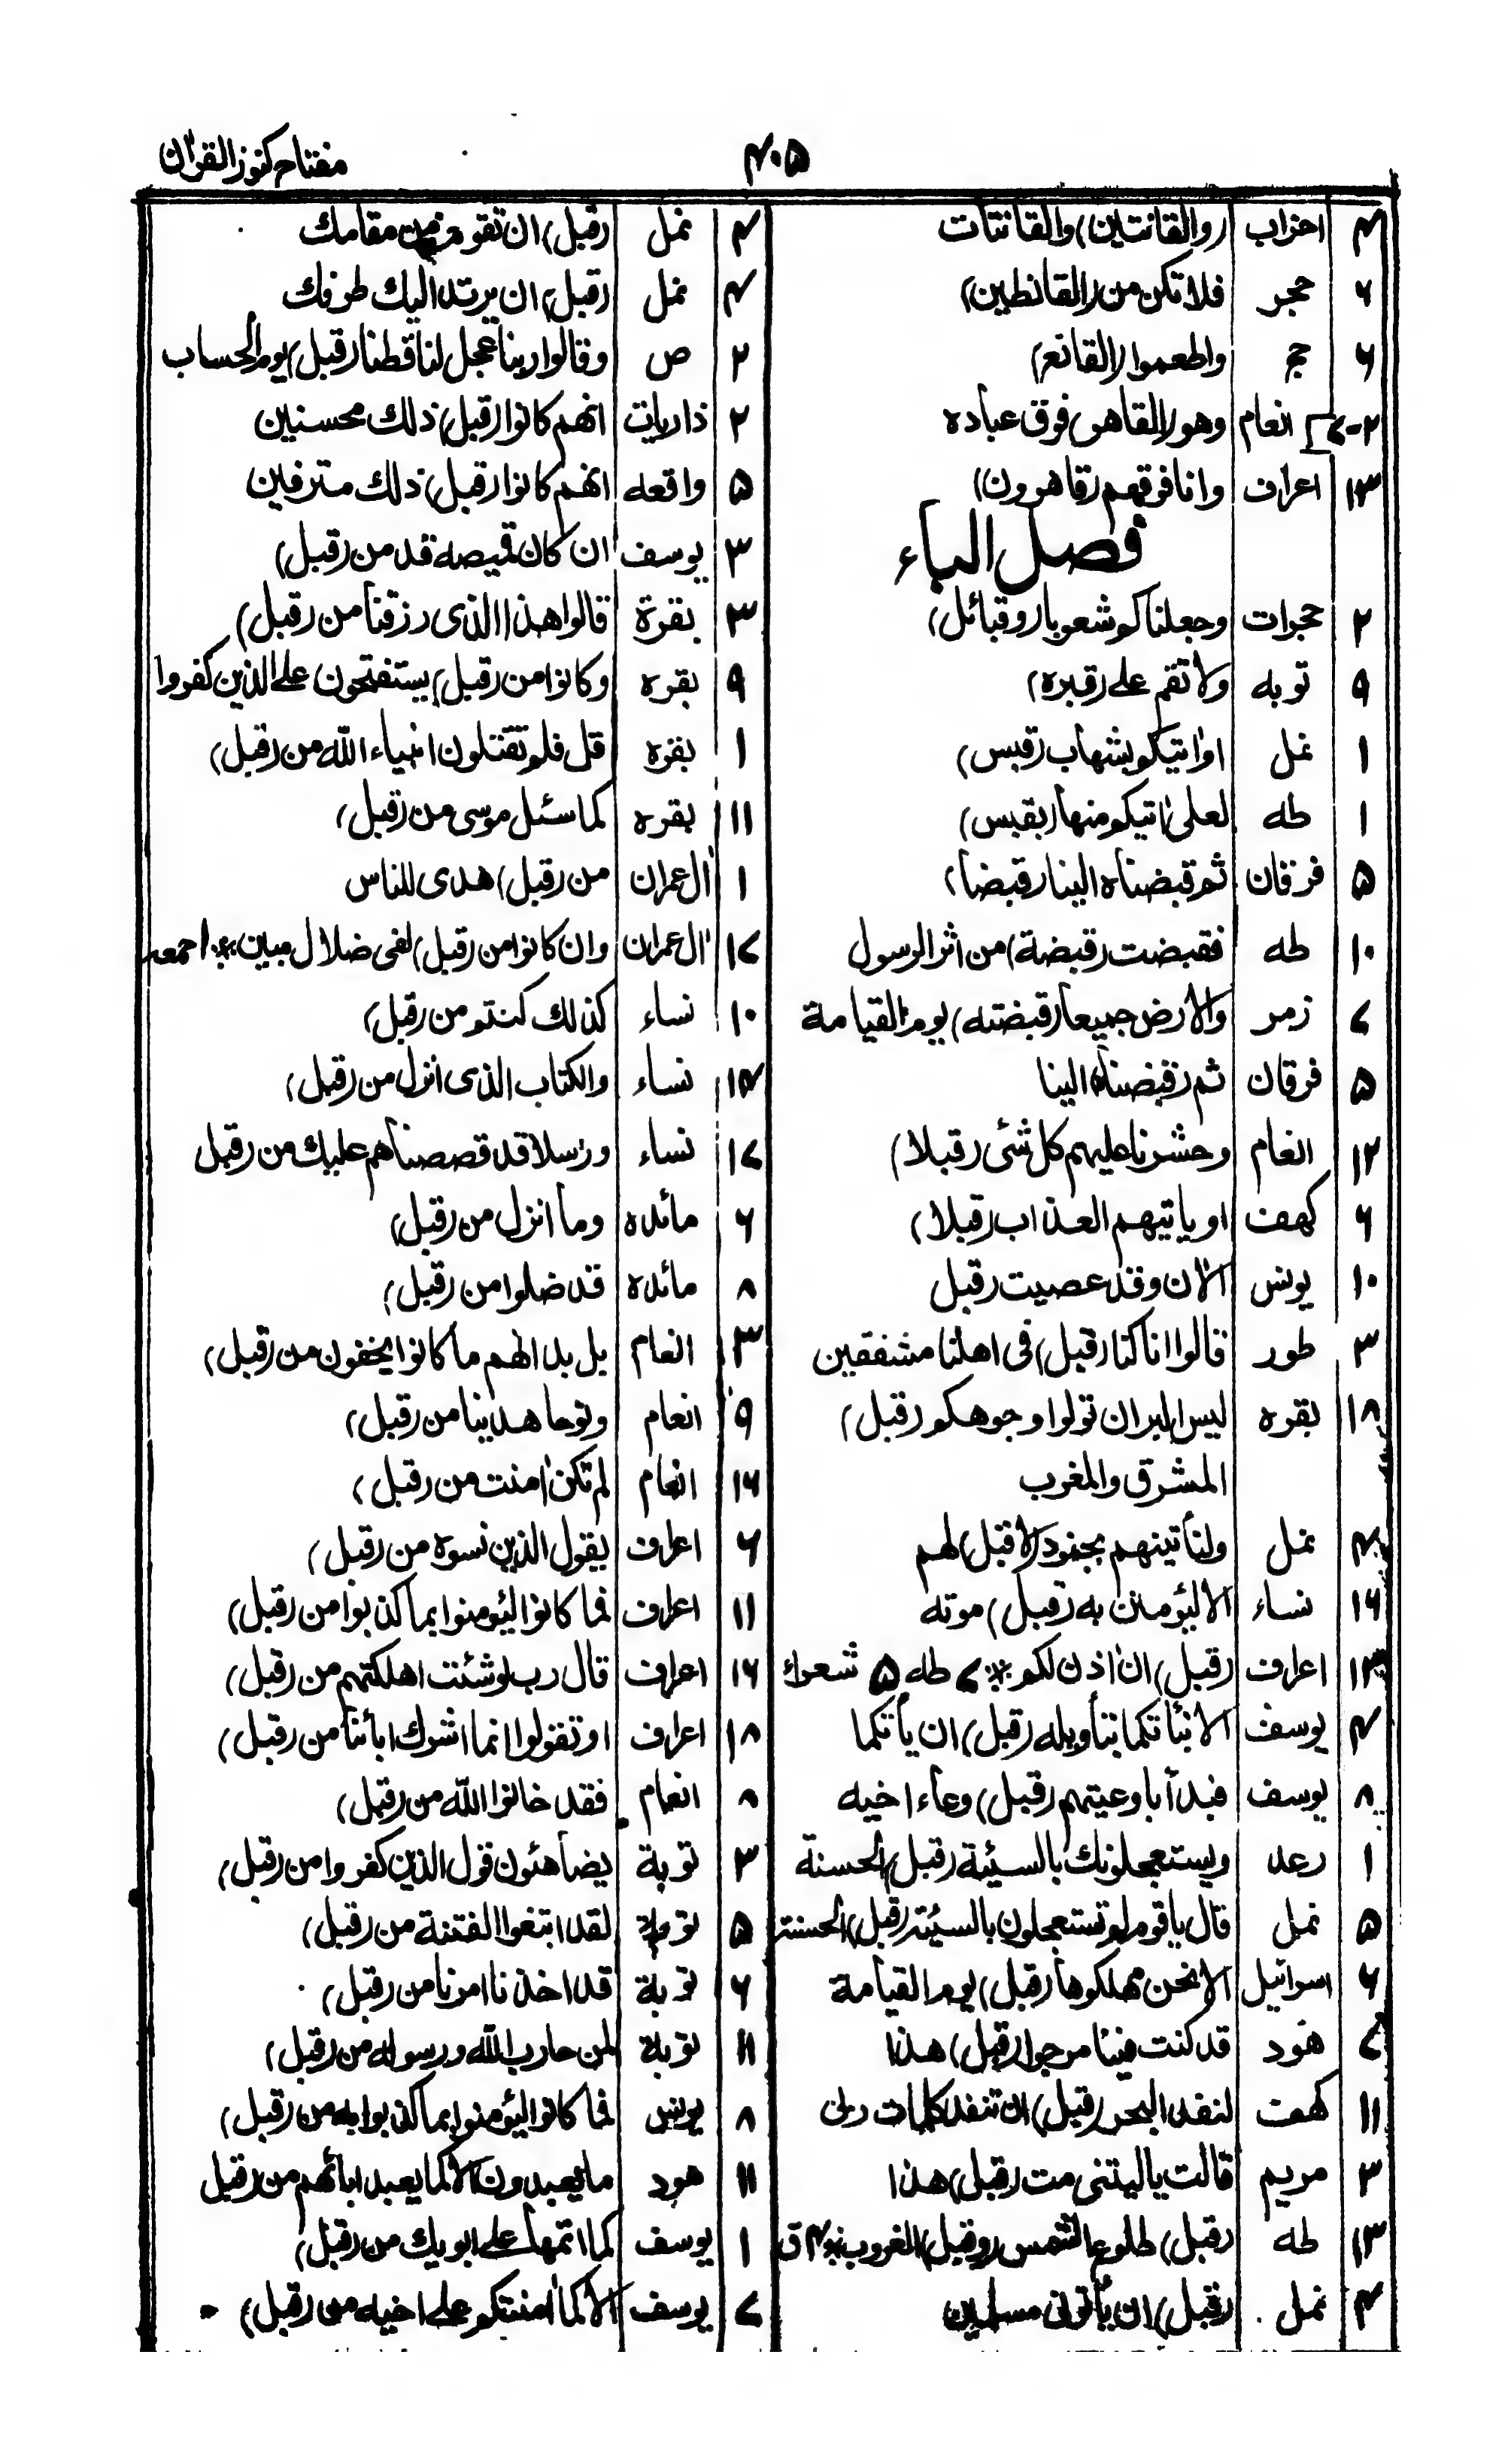 مفتاح كنوز القرآن
۴۰۵
۴ احزاب (والقانتين) والقانتات
۶ حجر فلا تكن من (القانطين)
۶ حج واطعموا (القانع)
۲-۷ انعام وهو (القاهر) فوق عباده
۱۳ اعراف وانا فوقهم (قاهرون)
فصل الباء
۲ حجرات وجعلناكم شعوبا (وقبائل)
۹ توبه ولا تقم على (قبره)
۱ نمل او اتيكم بشهاب (قبس)
۱ طه لعلى اتيكم منها (بقبس)
۵ فرقان ثم قبضناه الينا (قبضا)
۱۰ طه فقبضت (قبضة) من أثر الرسول
۷ زمر والارض جميعا (قبضته) يوم القيامة
۵ فرقان ثم (قبضناه) الينا
۱۲ انعام وحشرنا عليهم كل شئى (قبلا)
۶ كهف او ياتيهم العذاب (قبلا)
۱۰ يونس الان وقد عصيت (قبل
۳ طور قالوا انا كنا (قبل) فى اهلنا مشفقين
۱۸ بقره ليس البر ان تولوا وجوهكم (قبل)
المشرق والمغرب
۴ نمل ولنأتينهم بجنود (لا قبل) لهم
۱۶ نساء الا ليؤمنن به (قبل) موته
۱۳ اعراف (قبل) ان اذن لكم ۞ ۷ طه ۵ شعراء
۴ يوسف الا نبأتكما بتأويله (قبل) ان يأتكما
۸ يوسف فبدأ باوعيتهم (قبل) وعاء اخيه
۱ رعد ويستعجلونك بالسيئة (قبل) الحسنة
۵ نمل قال ياقوم لم تستعجلون بالسيئة (قبل) الحسنة
۶ اسرائيل الا نحن مهلكوها (قبل) يوم القيامة
۷ هود قد كنت فينا مرجوا (قبل) هذا
۱۱ كهف لنفد البحر (قبل) ان تنفد كلمات ربى
۳ مريم قالت ياليتنى مت (قبل) هذا
۱۳ طه (قبل) طلوع الشمس (وقبل) الغروب ۞ ۴ ق
۴ نمل (قبل) ان يأتونى مسلمين
۴ نمل (قبل) ان تقوم من مقامك
۴ نمل (قبل) ان يرتد اليك طرفك
۲ ص وقالوا ربنا عجل لنا قطنا (قبل) يوم الحساب
۲ ذاريات انهم كانوا (قبل) ذلك محسنين
۵ واقعه انهم كانوا (قبل) ذلك مترفين
۳ يوسف ان كان قميصه قد من (قبل)
۳ بقرة قالوا هذا الذى رزقنا من (قبل)
۹ بقره وكانوا من (قبل) يستفتحون على الذين كفروا
۱ بقره قل فلم تقتلون انبياء الله من (قبل)
۱۱ بقره كما سئل موسى من (قبل)
۱ ال عمران من (قبل) هدى للناس
۱۷ ال عمران وان كانوا من (قبل) لفى ضلال مبين ۞ ۱ جمعه
۱۰ نساء كذلك كنتم من (قبل)
۱۴ نساء والكتاب الذى انزل من (قبل)
۱۷ نساء ورسلا قد قصصناهم عليك من (قبل
۶ مائده وما أنزل من (قبل)
۸ مائده قد ضلوا من (قبل)
۳ انعام بل بدالهم ما كانوا يخفون من (قبل)
۹ انعام ونوحا هدينا من (قبل)
۱۶ انعام لم تكن امنت من (قبل)
۶ اعراف يقول الذين نسوه من (قبل)
۱۱ اعراف فما كانوا ليؤمنوا بما كذبوا من (قبل)
۱۶ اعراف قال رب لو شئت اهلكتهم من (قبل)
۱۸ اعراف او تقولوا انما اشرك ابائنا من (قبل)
۸ انعام فقد خانوا الله من (قبل)
۳ توبة يضاهئون قول الذين كفروا من (قبل)
۵ توبة لقد ابتغوا الفتنة من (قبل)
۶ توبة قد اخذنا امرنا من (قبل)
۱۱ توبة لمن حارب الله ورسوله من (قبل)
۸ يونس فما كانوا ليؤمنوا بما كذبوا به من (قبل)
۱۱ هود ما يعبدون الا كما يعبد ابائهم من (قبل
۱ يوسف كما اتمها على ابويك من (قبل)
۷ يوسف الا كما امنتكم على اخيه من (قبل)